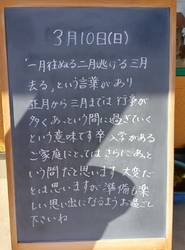 3月10日(日)
"一月往ぬる二月逃げる三月
去る"という言葉があり
正月から三月までは行事が
多くあっという間に過ぎていく
という意味です卒入学がある
ご家庭にとってはさらにあっと
いう間だと思います 大変だ
とは思いますが準備も楽
しい思い出になるようお過ごし
下さいね